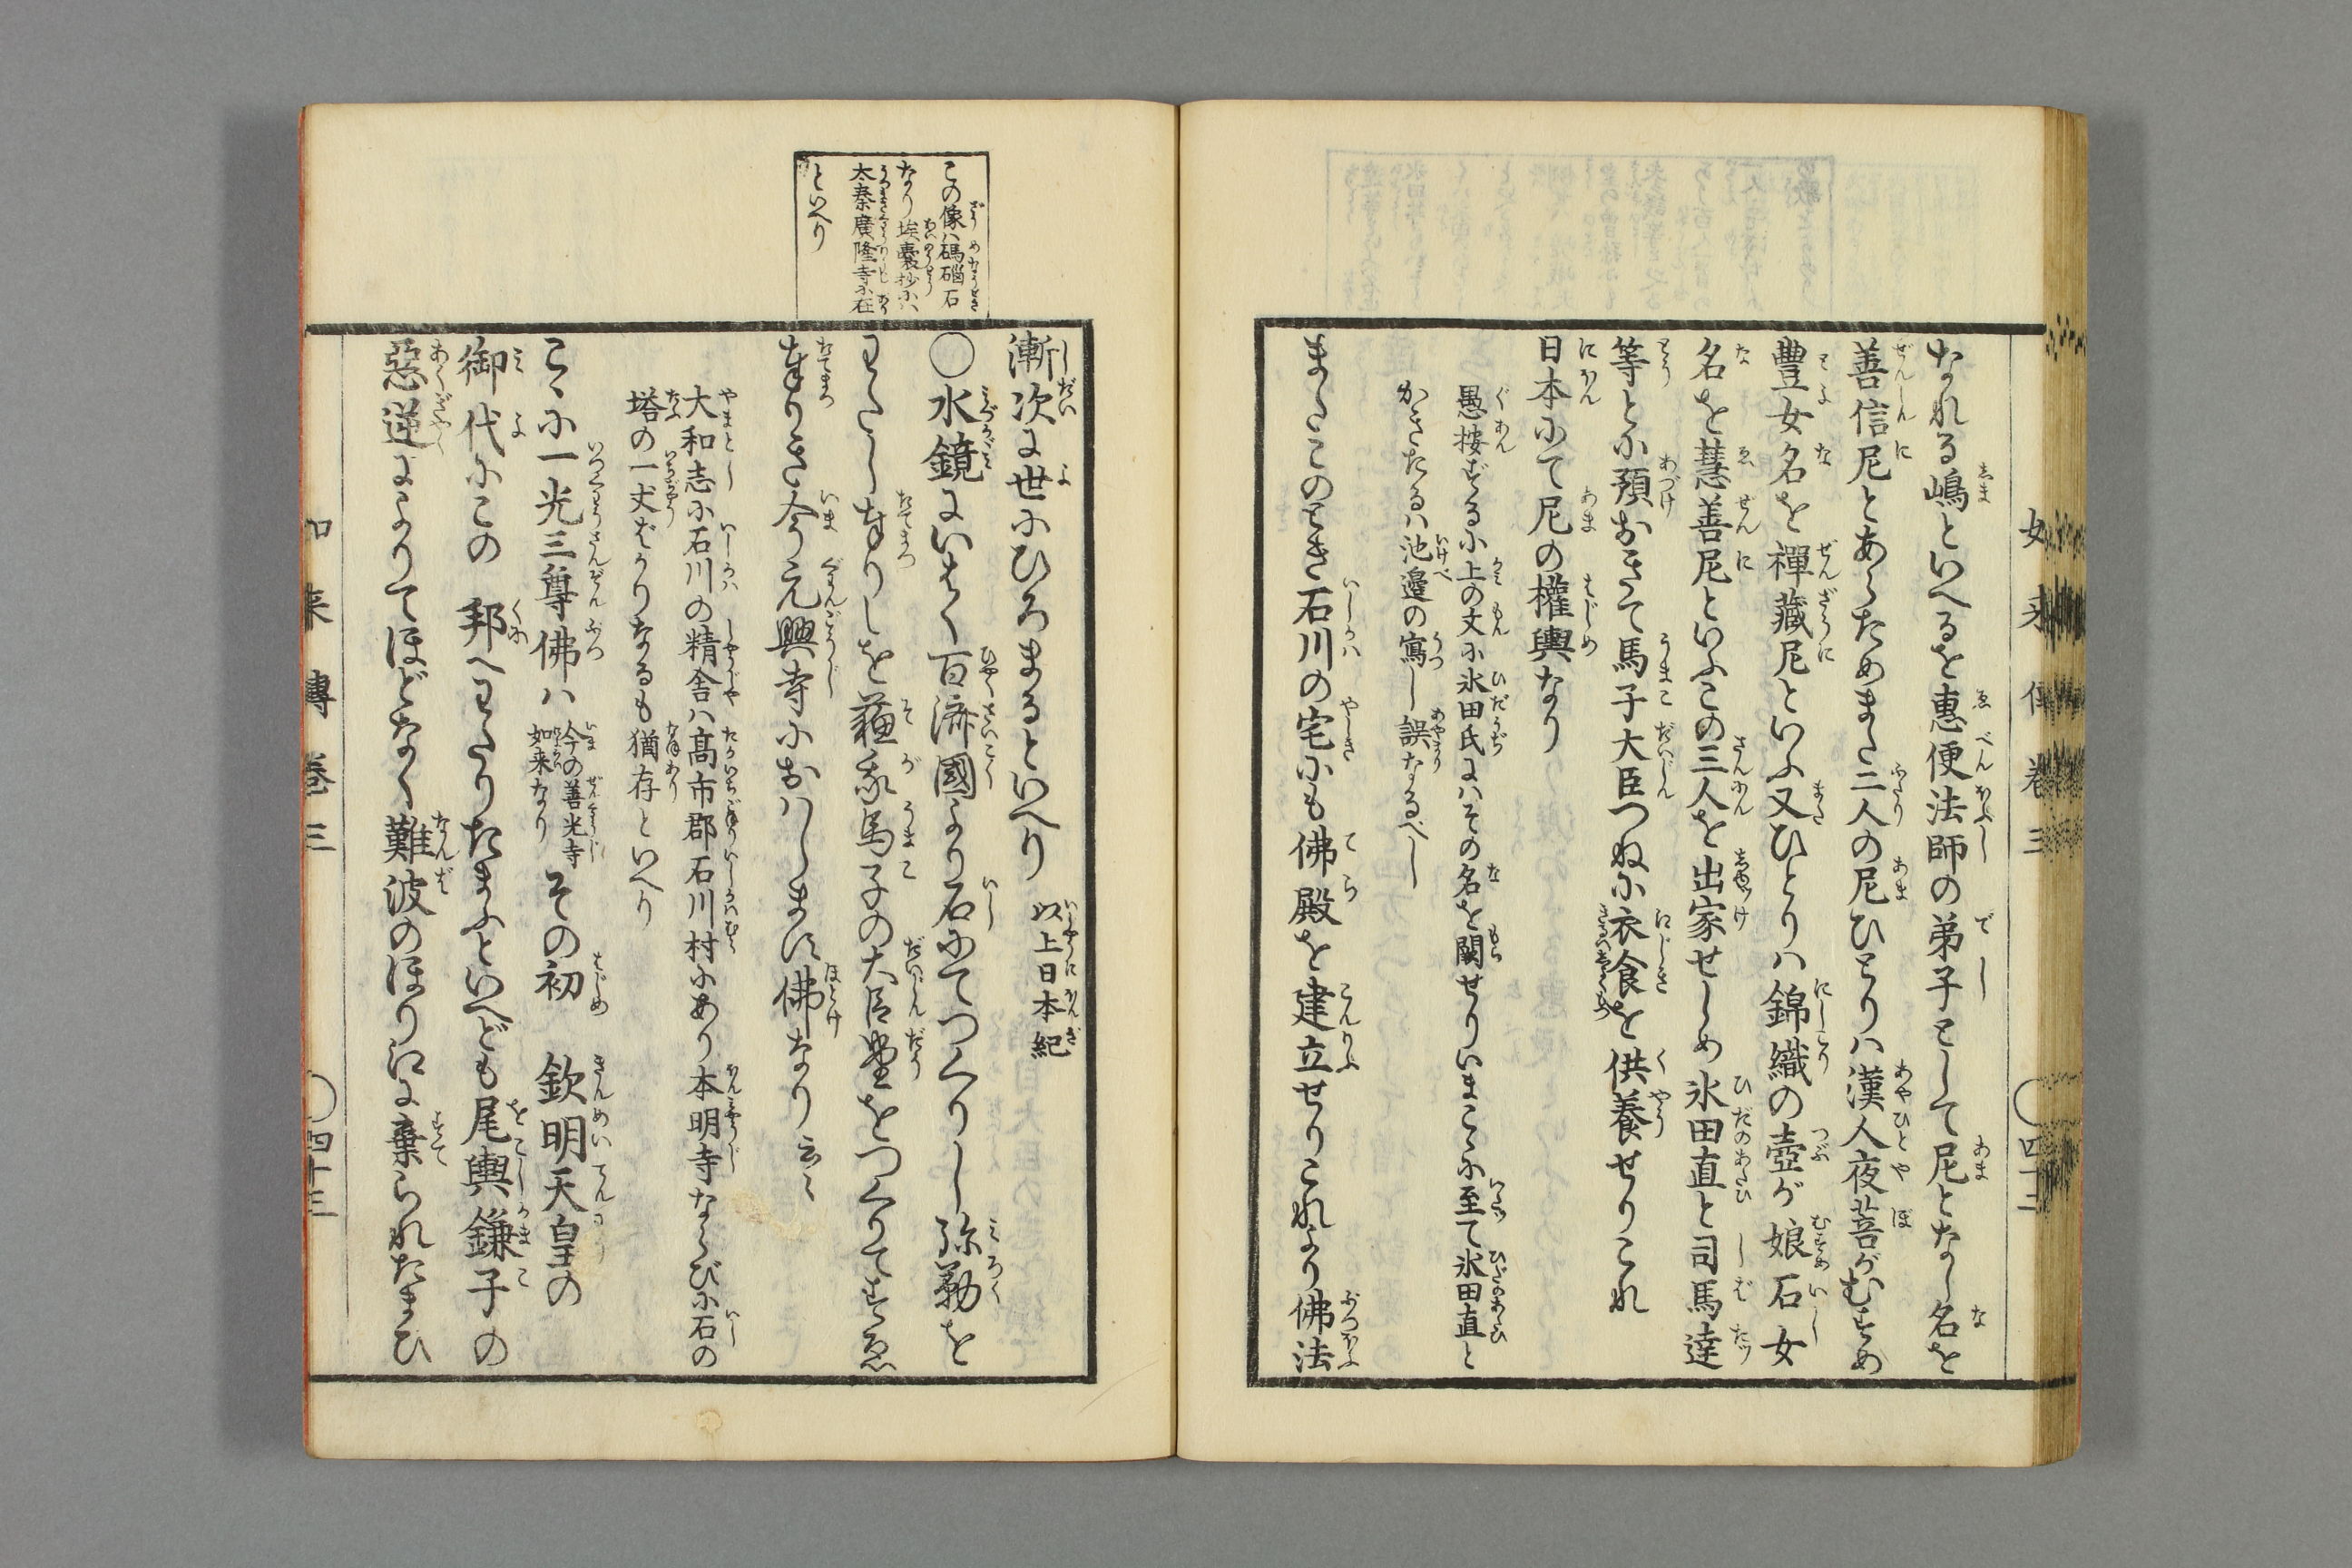 如来傳巻三
〇四十三
なれる嶋といへるを惠便法師の弟子として尼となし名を
善信尼とあらためまた二人の尼ひとりハ漢人夜菩がむすめ
豊女名を禪藏尼といふ又ひとりハ錦織の壺が娘石女
名を慧善尼といふこの三人を出家せしめ氷田直と司馬達
等とに預おきて馬子大臣つねに衣食を供養せりこれ
日本にて尼の權輿なり
愚按ずるに上の文に氷田氏にハその名を闕せりいまこゝに至て氷田直と
かきたるハ池邉の寫し誤なるべし
またこのとき石川の宅にも佛殿を建立せりこれより佛法
漸次に世にひろまるといへり 以上日本紀
〇水鏡にいはく百濟國より石にてつくりし弥勒を
わたし奉りしを蘓我馬子の大臣堂をつくりてすゑ
奉りき今元興寺におハします佛なり云々
大和志に石川の精舎ハ髙市郡石川村にあり本明寺ならびに石の
塔の一丈ばかりなるも猶存といへり
こゝに一光三尊佛ハ今の善光寺如来なりその初 欽明天皇の
御代にこの 邦へわたりたまふといへども尾輿鎌子の
惡逆によりてほどなく難波のほり江に棄られたまひ
この像ハ碼碯石
なり埃嚢抄にハ
太秦廣隆寺に在
といへり
如来傳巻三
〇四十三